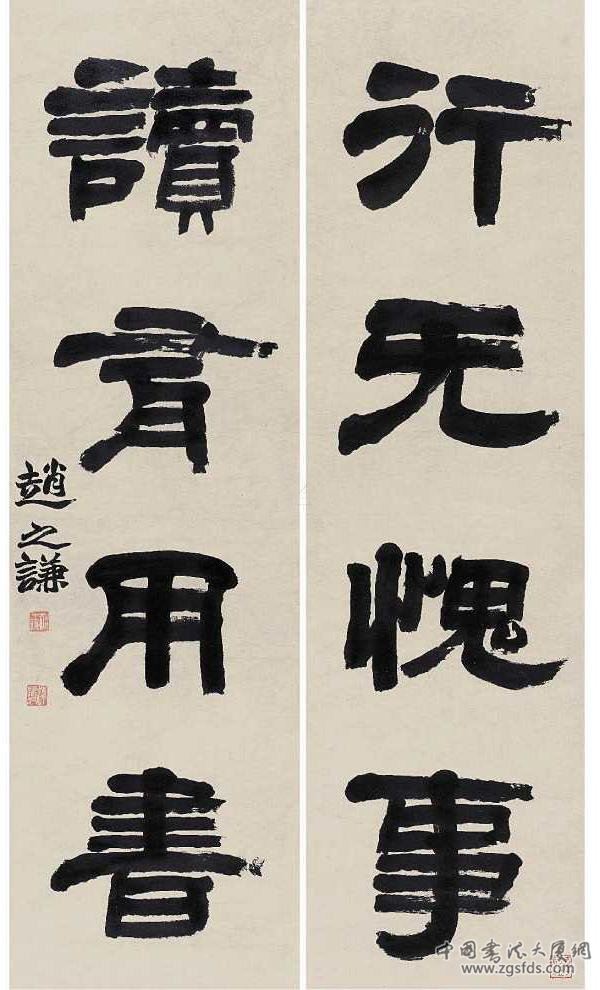 行无愧事
讀有用書
趙之謙
中国书法大厦網
www.zgsfds.com